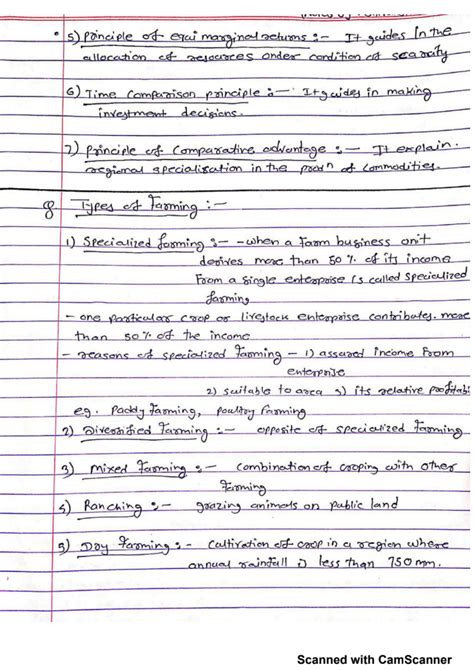 5) Principle of equi marginal returns :- It guides in the
allocation of resources under condition of scarcity
6) Time Comparison principle :- It guides in making
investment decisions.
7) Principle of Comparative advantage :- It explain
regional specialisation in the prodn of Commodities.
8. Types of Farming :-
1) Specialized farming :- - when a Farm business unit
derives more than 50 % of its income
From a single enterprise is called specialized
farming
- one particular crop or livestock enterprise contributes. more
than 50 % of the income
- reasons of specialized Farming - 1) assured income From
enterprise
2) suitable to area 3) its relative
eg. Paddy Farming, poultry Farming
2) Diversified Farming :- opposite of specialized Farming
3) Mixed Farming :- Combination of croping with other
Farming
4) Ranching :- grazing animals on public land
5) Dry Farming :- Cultivation of crop in a region where
annual rainfall is less than 750 mm.
Scanned with CamScanner